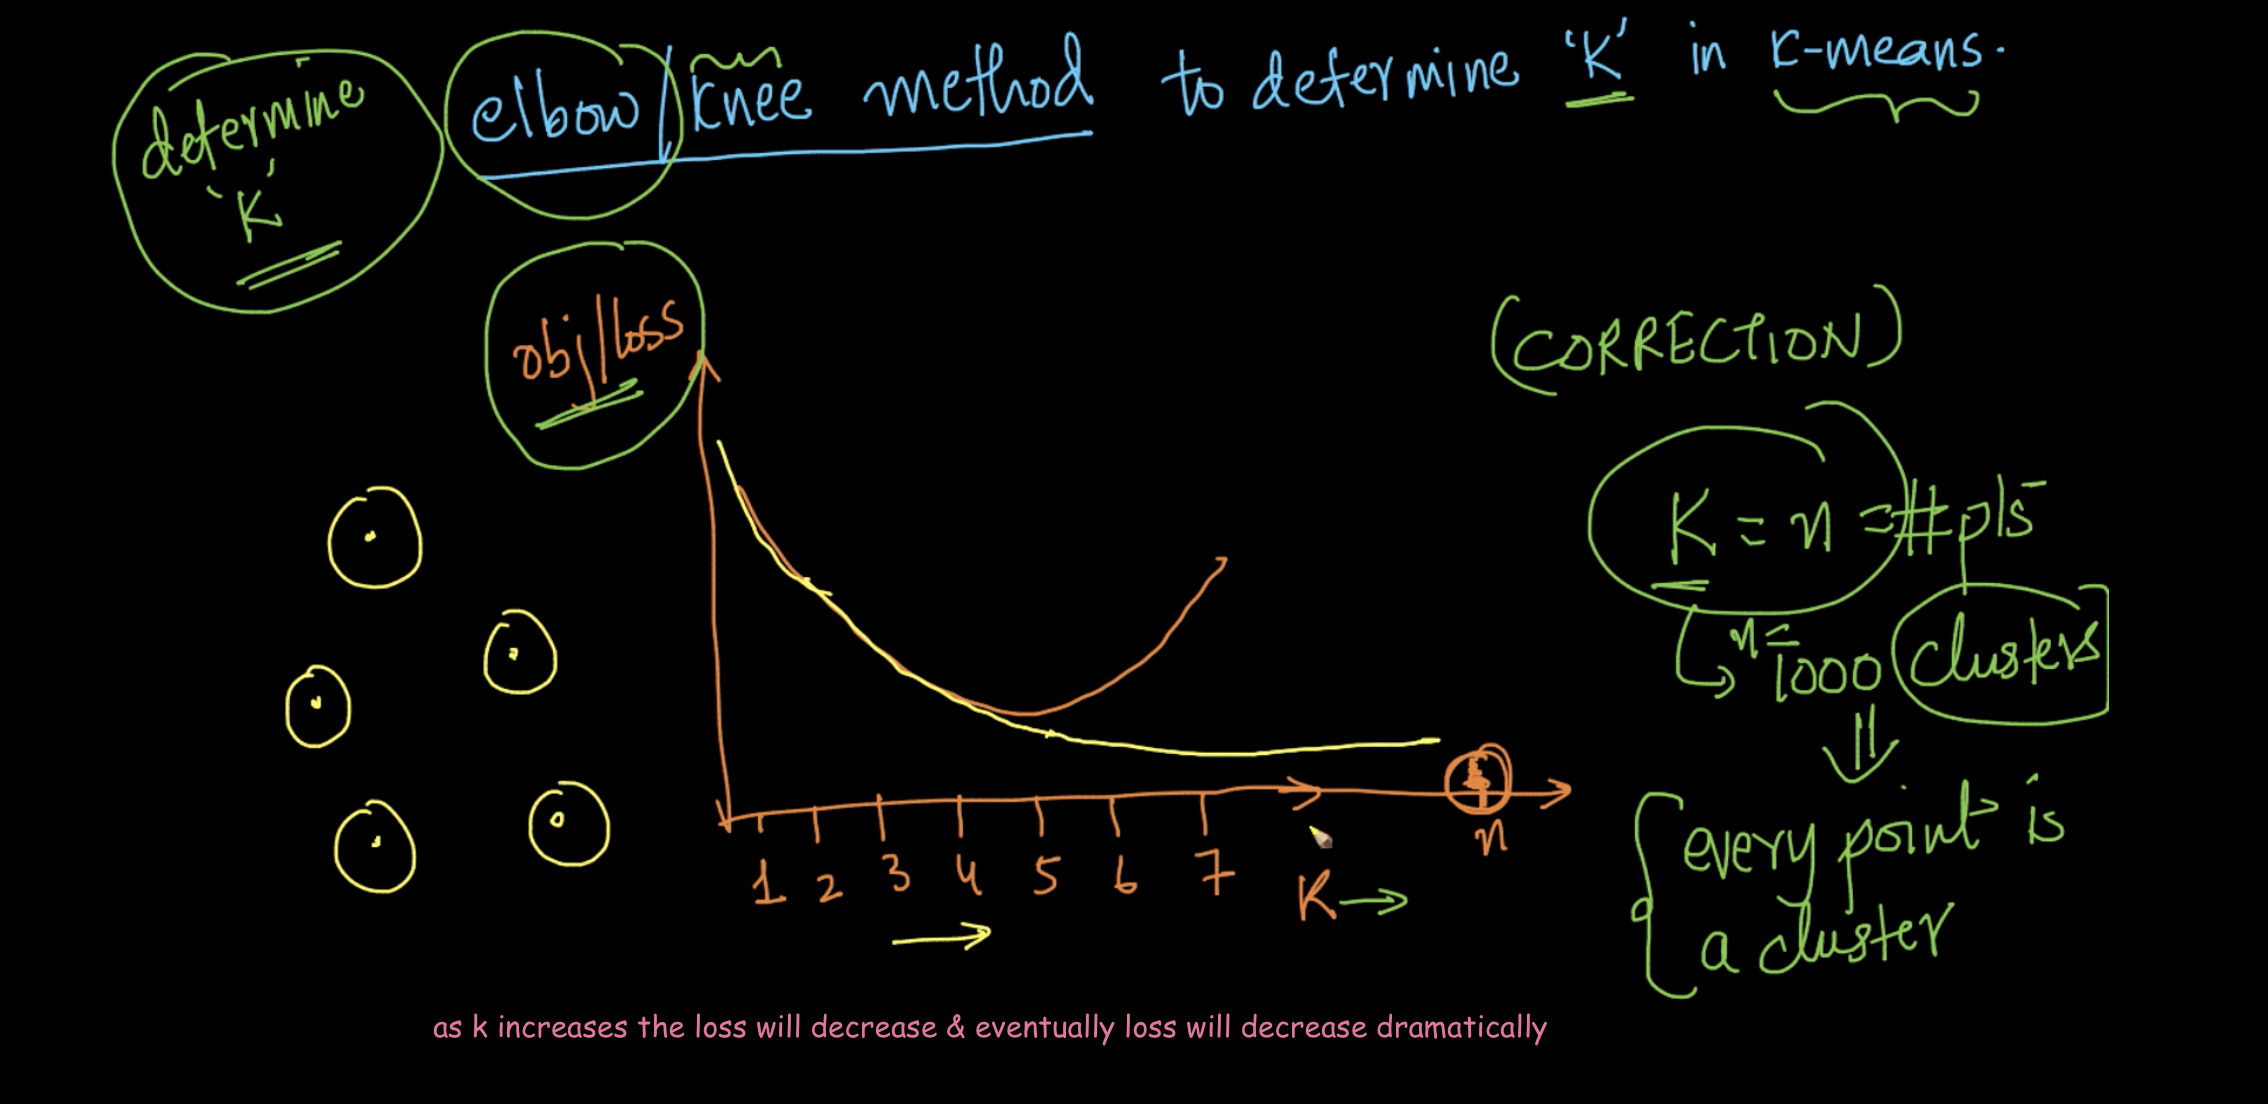 elbow/knee method to determine 'K' in K-means.
determine
'K'
obj/loss
(CORRECTION)
K = n = #pts
n=
1000 clusters
every point is
a cluster
n
1 2 3 4 5 6 7 K →
as k increases the loss will decrease & eventually loss will decrease dramatically